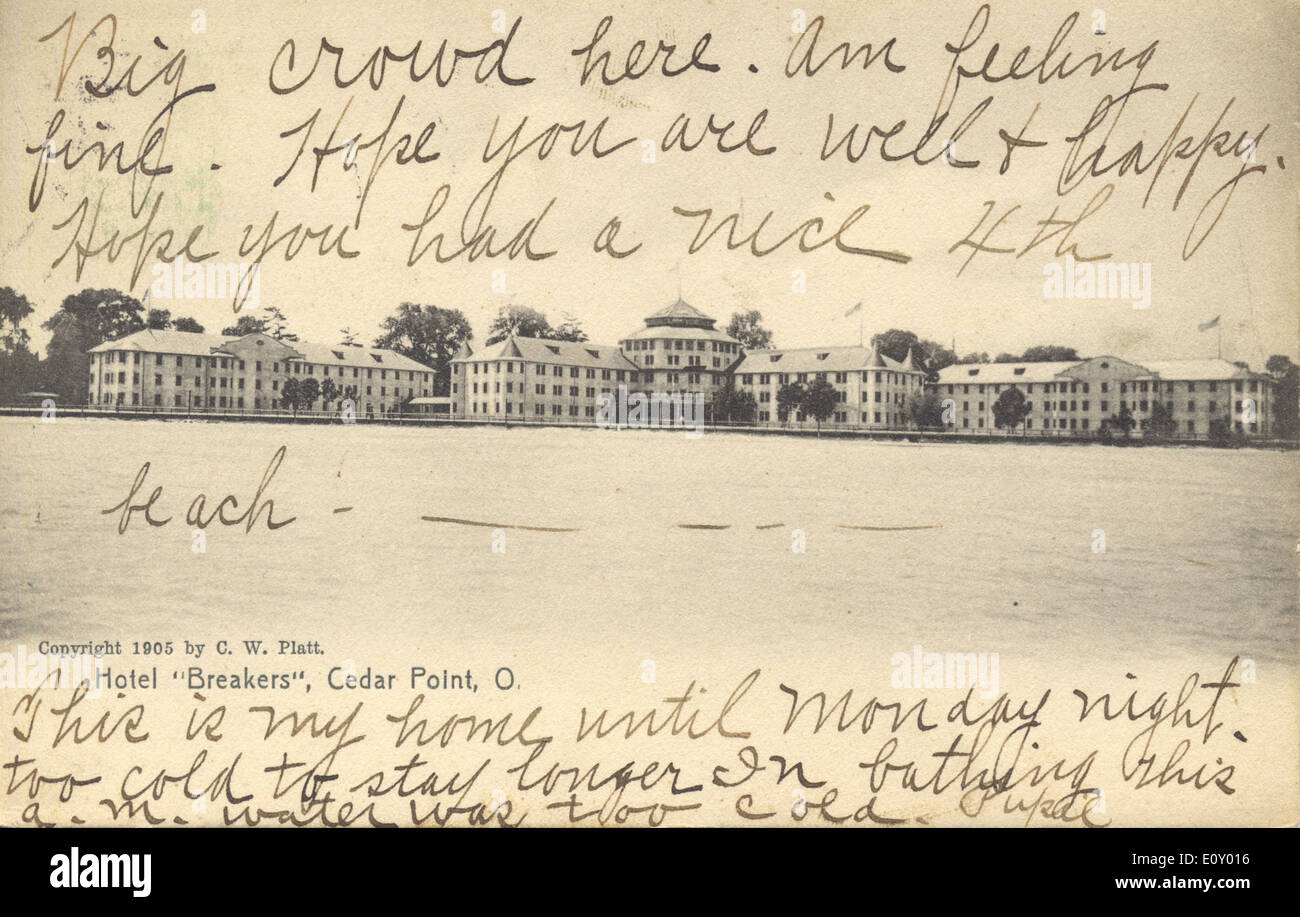 Big crowd here. Am feeling
fine. Hope you are well & happy.
Hope you had a nice 4th
beach -
Copyright 1905 by C. W. Platt.
Hotel "Breakers", Cedar Point, O.
This is my home until Monday night.
too cold to stay longer In bathing this
a. m. water was too cold.
alamy
Image ID: E0Y016
www.alamy.com